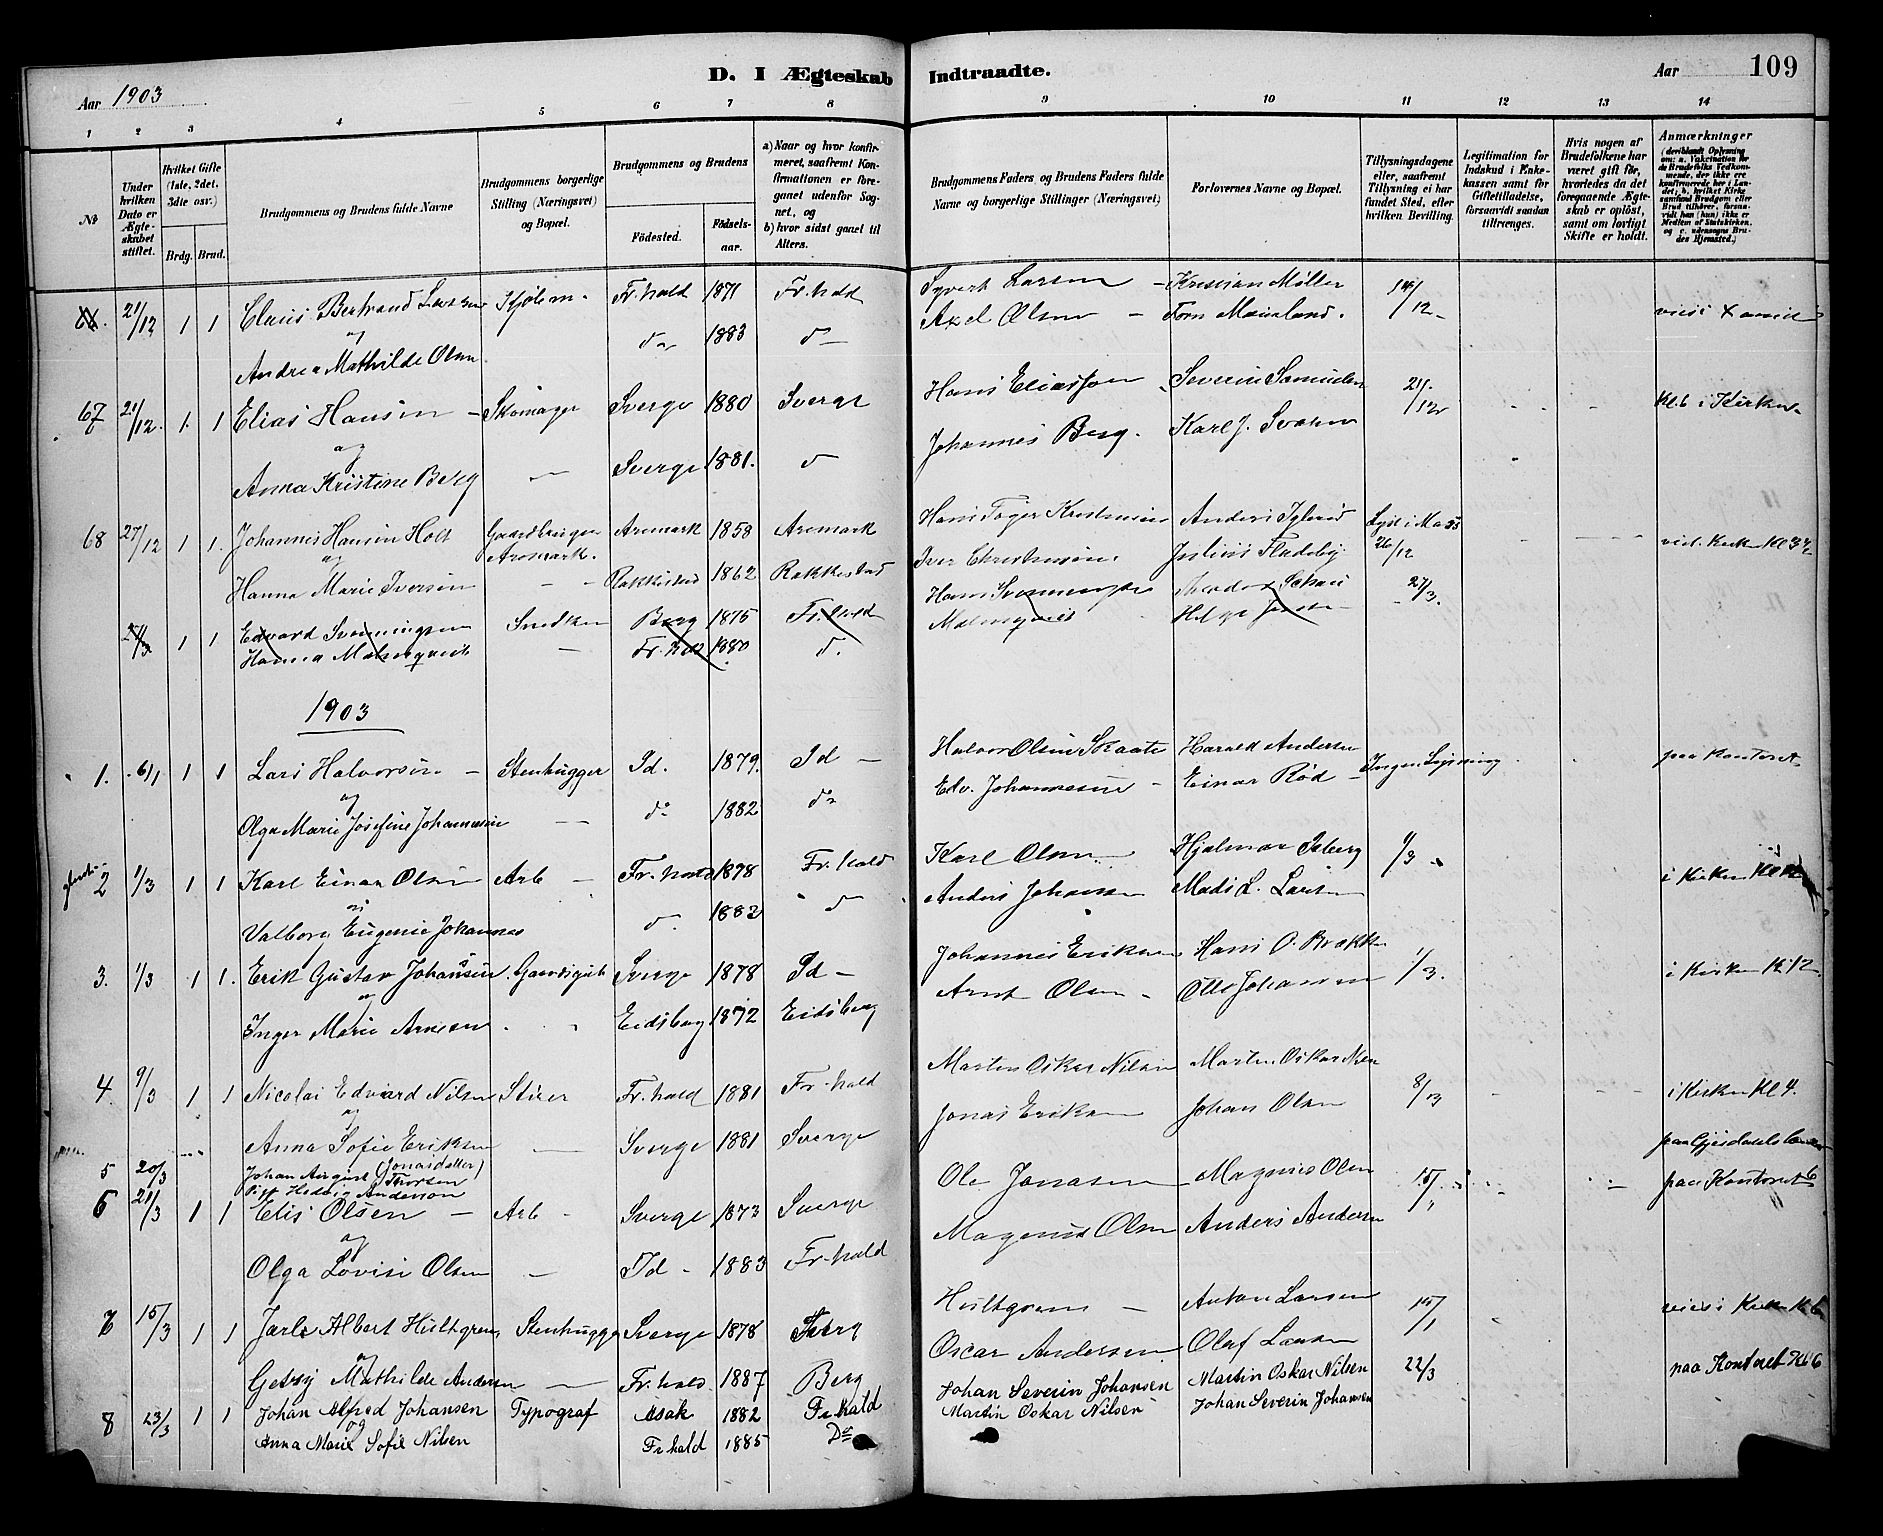 D. I Ægteskab Indtraadte.
Aar 1903
Aar 109
1 2 3 4 5 6 7 8 9 10 11 12 13 14
№
Under hvilken Dato er Ægteskabet stiftet.
Hvilket Gifte (1ste, 2det, 3die osv.)
Brdg. Brud.
Brudgommens og Brudens fulde Navne
Brudgommens borgerlige Stilling (Næringsvei) og Bopæl.
Brudgommens og Brudens
Fødested.
Fødselsaar.
a) Naar og hvor konfirmeret, saafremt Konfirmationen er foregaaet udenfor Sognet, og
b) hvor sidst gaaet til Alters.
Brudgommens Faders og Brudens Faders fulde Navne og borgerlige Stillinger (Næringsvei)
Forlovernes Navne og Bopæl.
Tillysningsdagene eller, saafremt Tillysning ei har fundet Sted, efter hvilken Bevilling.
Legitimation for Indskud i Enkekassen samt for Giftetilladelse, forsaavidt saadan tiltrænges.
Hvis nogen af Brudefolkene har været gift før, hvorledes da det foregaaende Ægteskab er opløst, samt om lovligt Skifte er holdt.
Anmærkninger
(deriblandt Oplysning om: a. Vakcination for de Brudefolks Vedkommende, der ikke ere konfirmerede her i Landet; b. hvilket Kirkesamfund Brudgom eller Brud tilhører, forsaavidt han (hun) ikke er Medlem af Statskirken, og c. udensogns Brudes Hjemsted.)
21/12 1 1 Claus Bertrand Larsen Fr.hald 1871 Fr.hald Syvert Larsen – Kristian Møller 14/12
og
Andrea Mathilde Olsen do 1883 do Axel Olsen – Tom Maurland.
67 21/12 1 1 Elias Hansen – Skomager Sverge 1880 Sverge Hans Eliasson Severin Samuelsen 21/12 Kl. 6 i Kirken
og
Anna Kristine Berg – Sverge 1881. d Johannes Berg. Karl J.
68 27/12 1 1. Johannes Hansen Holt Gaardbruger Aremark. Aremark 1858 Aremark Anders Lyst i Moss 26/12
og
Hanna Marie Iversen – Rakkestad 1862 Rakkestad Iver Christensen Julius Fladeby
1 1 Edvard Svenningsen Snedker Berg 1875 Fr.hald Hans Svenningsen 21/3.
Hanna Malmquist – Fr.hald 1880 d. Malmquist
1903
1. 6/1 1 1 Lars Halvorsen – Stenhugger Id. 1879. Id – Halvor Olsen Skaate Harald Andersen Ingen Lysning paa Kontoret
og
Olga Marie Josefine Johannesen – do 1882 do Edv. Johannesen – Einar Rød –
2 1/3 1 1 Karl Einar Olsen Arb – Fr.hald 1878 Fr.hald Karl Olsen Hjalmar Isberg 1/3 i Kirken
og
Valborg Eugenie Johannes d. 1882 d Anders Johansen Mads L. Larsen
3. 1/3 1 1. Erik Gustav Johansen. Sverge 1878 Id – Johannes Eriksen Hans O. Brække 1/3. i Kirken Kl 12.
og
Inger Marie Arnesen Eidsberg 1872 Eidsberg Arnt Olsen – Otto Johansen
4 9/3 1 1 Nicolai Edvard Nilsen Fr.hald 1881 Fr.hald Martin Oskar Nilsen Martin Oskar Nilsen 8/3 i Kirken Kl 4.
og
Anna Sofie Eriksen – Sverge 1881 Sverge Jonas Eriksen Johan Olsen
(Jonasdatter)
5 20/3 Johan August Thorsen
Pige Hedvig Anderson
6 21/3 1 1 Elis Olsen – Arb – Sverge 1873 Sverge Ole Jonasen – Magnus Olsen 15/1 paa Kontoret 6
og
Olga Lovise Olsen – Id – 1883 Fr.hald Magnus Olsen Anders Andersen
7 15/3 1 1 Jarl Albert Hultgren Stenhugger Sverge 1878 Hultgren – Anton Larsen 15/1
og
Getsy Mathilde Andersen – Fr.hald. 1887 Berg Oscar Andersen Olaf Larsen
8 23/3 1 1 Johan Alfred Johansen Typograf Asak 1882 Fr.hald Johan Severin Johansen Martin Oskar Nilsen 22/3 paa Kontoret Kl 6
og
Anna Marie Sofie Nilsen Fr.hald 1885 Do Martin Oskar Nilsen Johan Severin Johansen